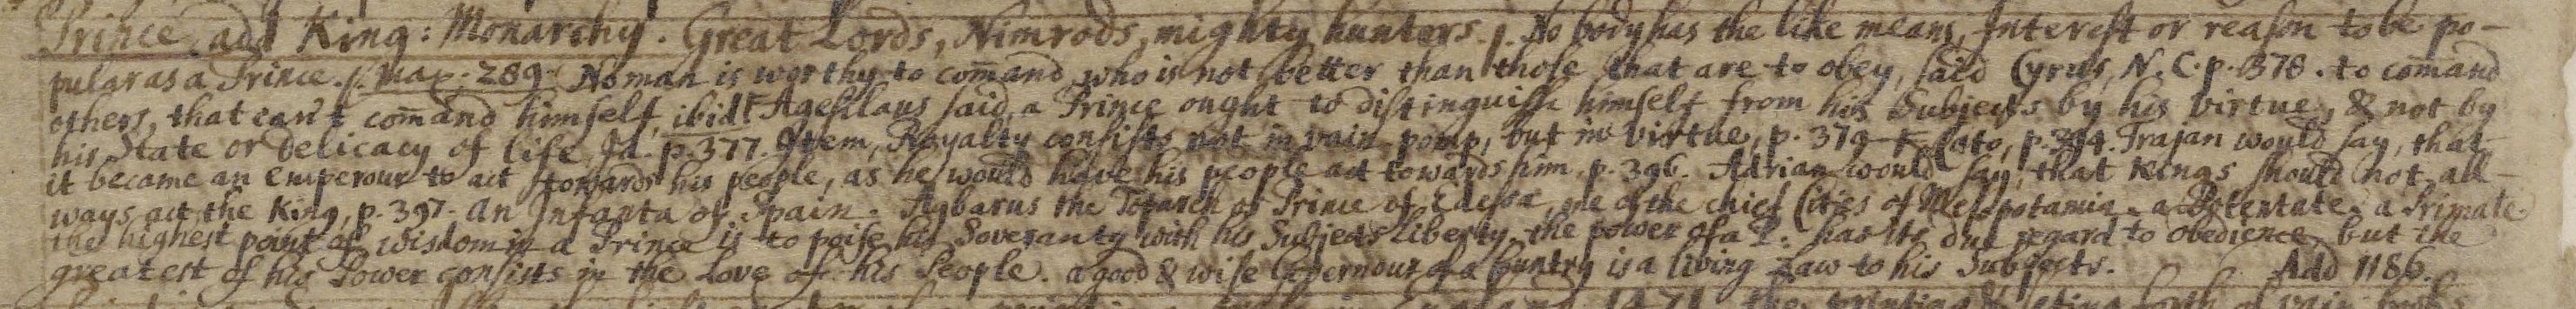 Prince. add King: Monarchy. Great Lords, Nimrods, mighty hunters. No body has the like means, Interest or reason to be po-
pular as a Prince. Max. 289. No man is worthy to com̄and, who is not better than those that are to obey, said Cyrus, N. C. p. 378. to com̄and
others, that can't com̄and himself, ibid. Agesilaus said, a Prince ought to distinguish himself from his Subjects by his virtue, & not by
his State or delicacy of life, Id. p. 377. Item, Royalty consists not in vain pomp, but in virtue, p. 379. Cato, p. 394. Trajan would say, that
it became an emperour to act towards his people, as he would have his people act towards him, p. 396. Adrian would say, that Kings should not all-
ways act the King, p. 397. an Infanta of Spain. Agbarus the Toparch or Prince of Edessa, one of the chief Cities of Mesopotamia. a Potentate. a Primate
the highest point of wisdom in a Prince is to poise his Soveranty with his Subjects liberty, the power of a P. has its due regard to obedience, but the
greatest of his Power consists in the Love of his People. a good & wise Governour of a Cuntry is a living Law to his Subjects. Add 1186.